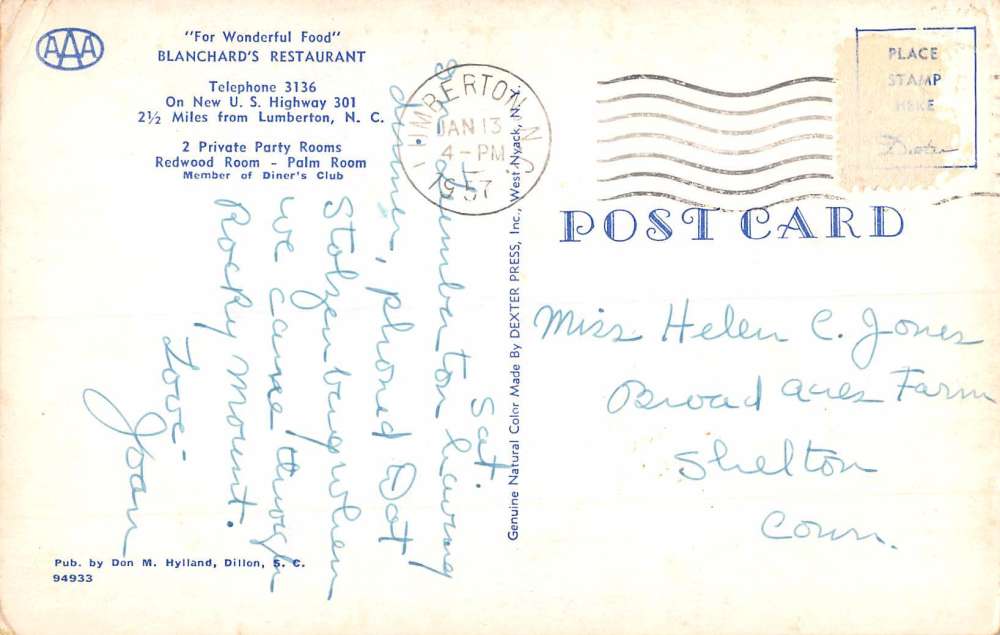 AAA
"For Wonderful Food"
BLANCHARD'S RESTAURANT
Telephone 3136
On New U. S. Highway 301
2½ Miles from Lumberton, N. C.
2 Private Party Rooms
Redwood Room - Palm Room
Member of Diner's Club
LUMBERTON, N.C.
JAN 13
4-PM
1957
PLACE
STAMP
HERE
Dexter
POST CARD
Sat.
In Lumberton having
dinner, phoned Dot
Stolzenburg when
we came through
Rocky Mount.
Love -
Joan
Genuine Natural Color Made By DEXTER PRESS, Inc., West Nyack, N.Y.
Miss Helen C. Jones
Broad Acres Farm
Shelton
Conn.
Pub. by Don M. Hylland, Dillon, S. C.
94933